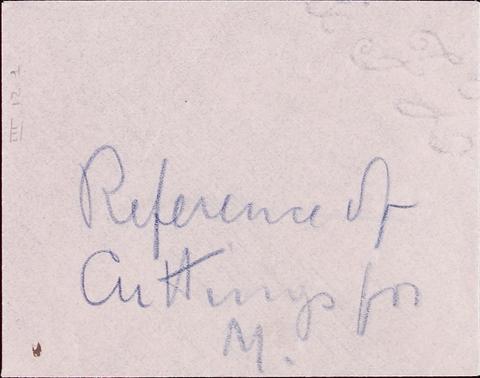 III 12.2
Reference of
Cuttings for
M.